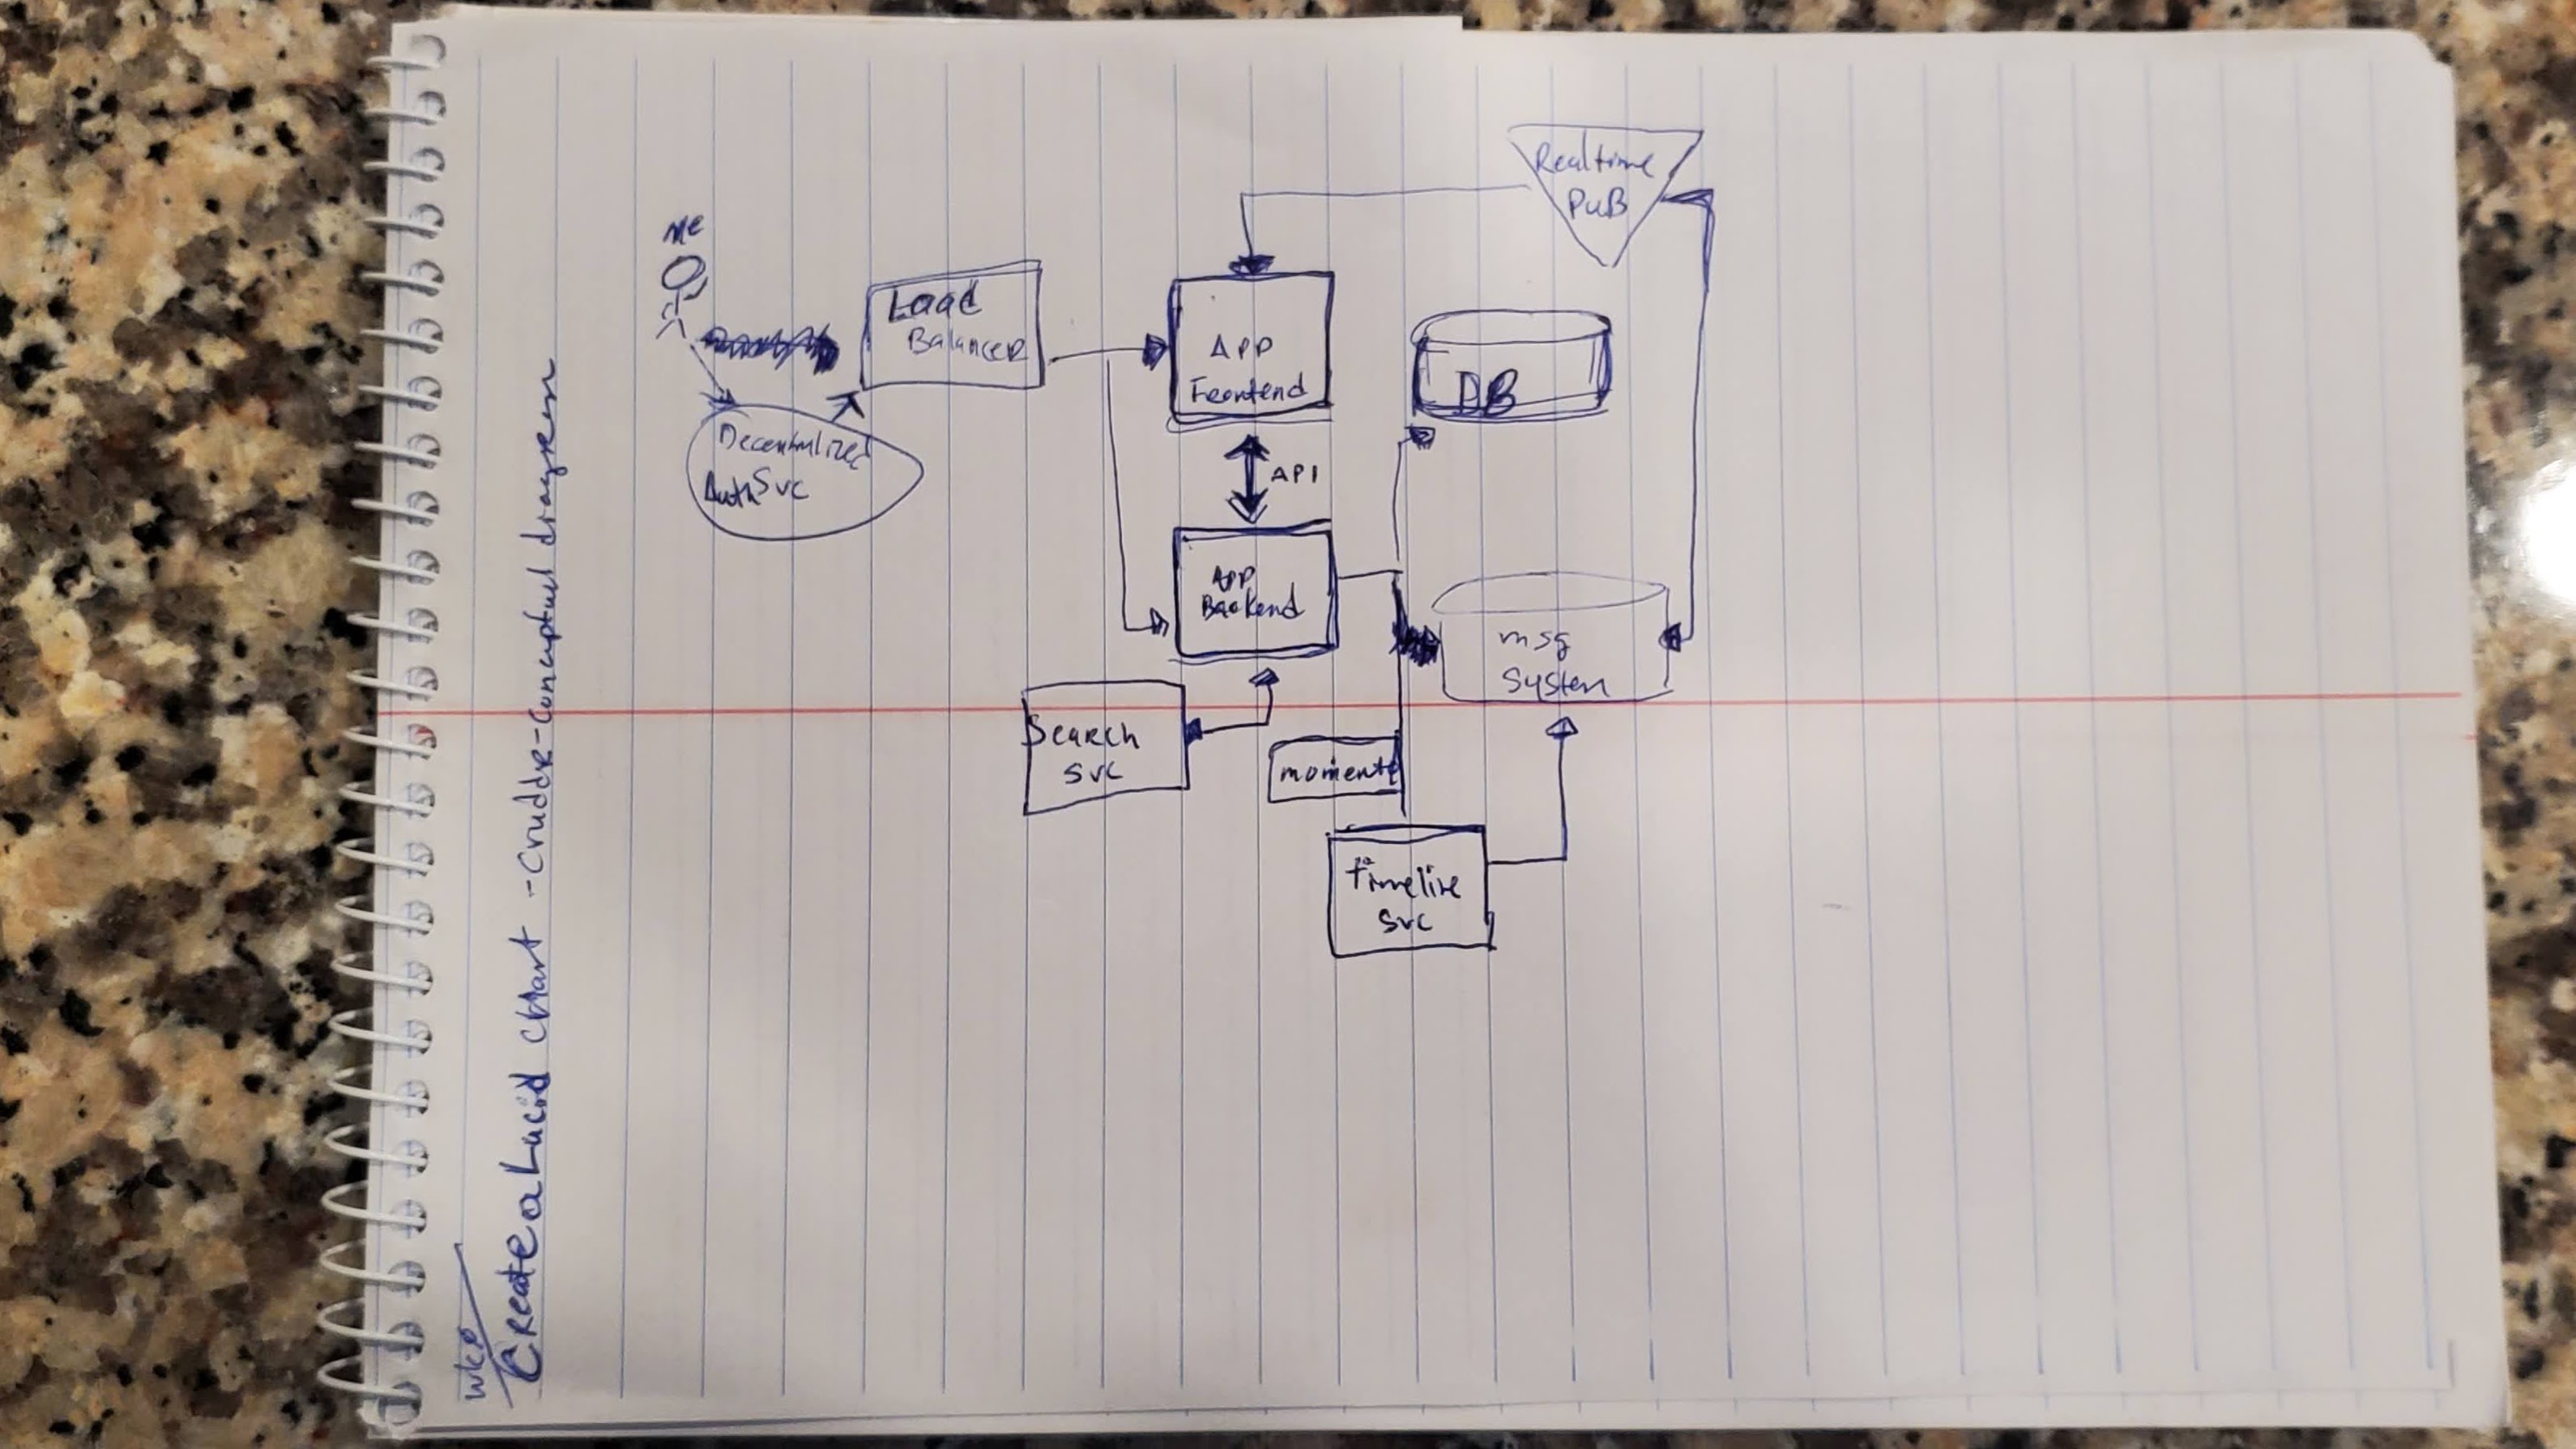 wk0
Create a Lucid chart - Cruddr - Conceptual diagram
Me
Load
Balancer
Decentralized
Auth Svc
App
Frontend
API
App
Backend
Realtime
PUB
DB
msg
System
Search
Svc
momento
Timeline
Svc